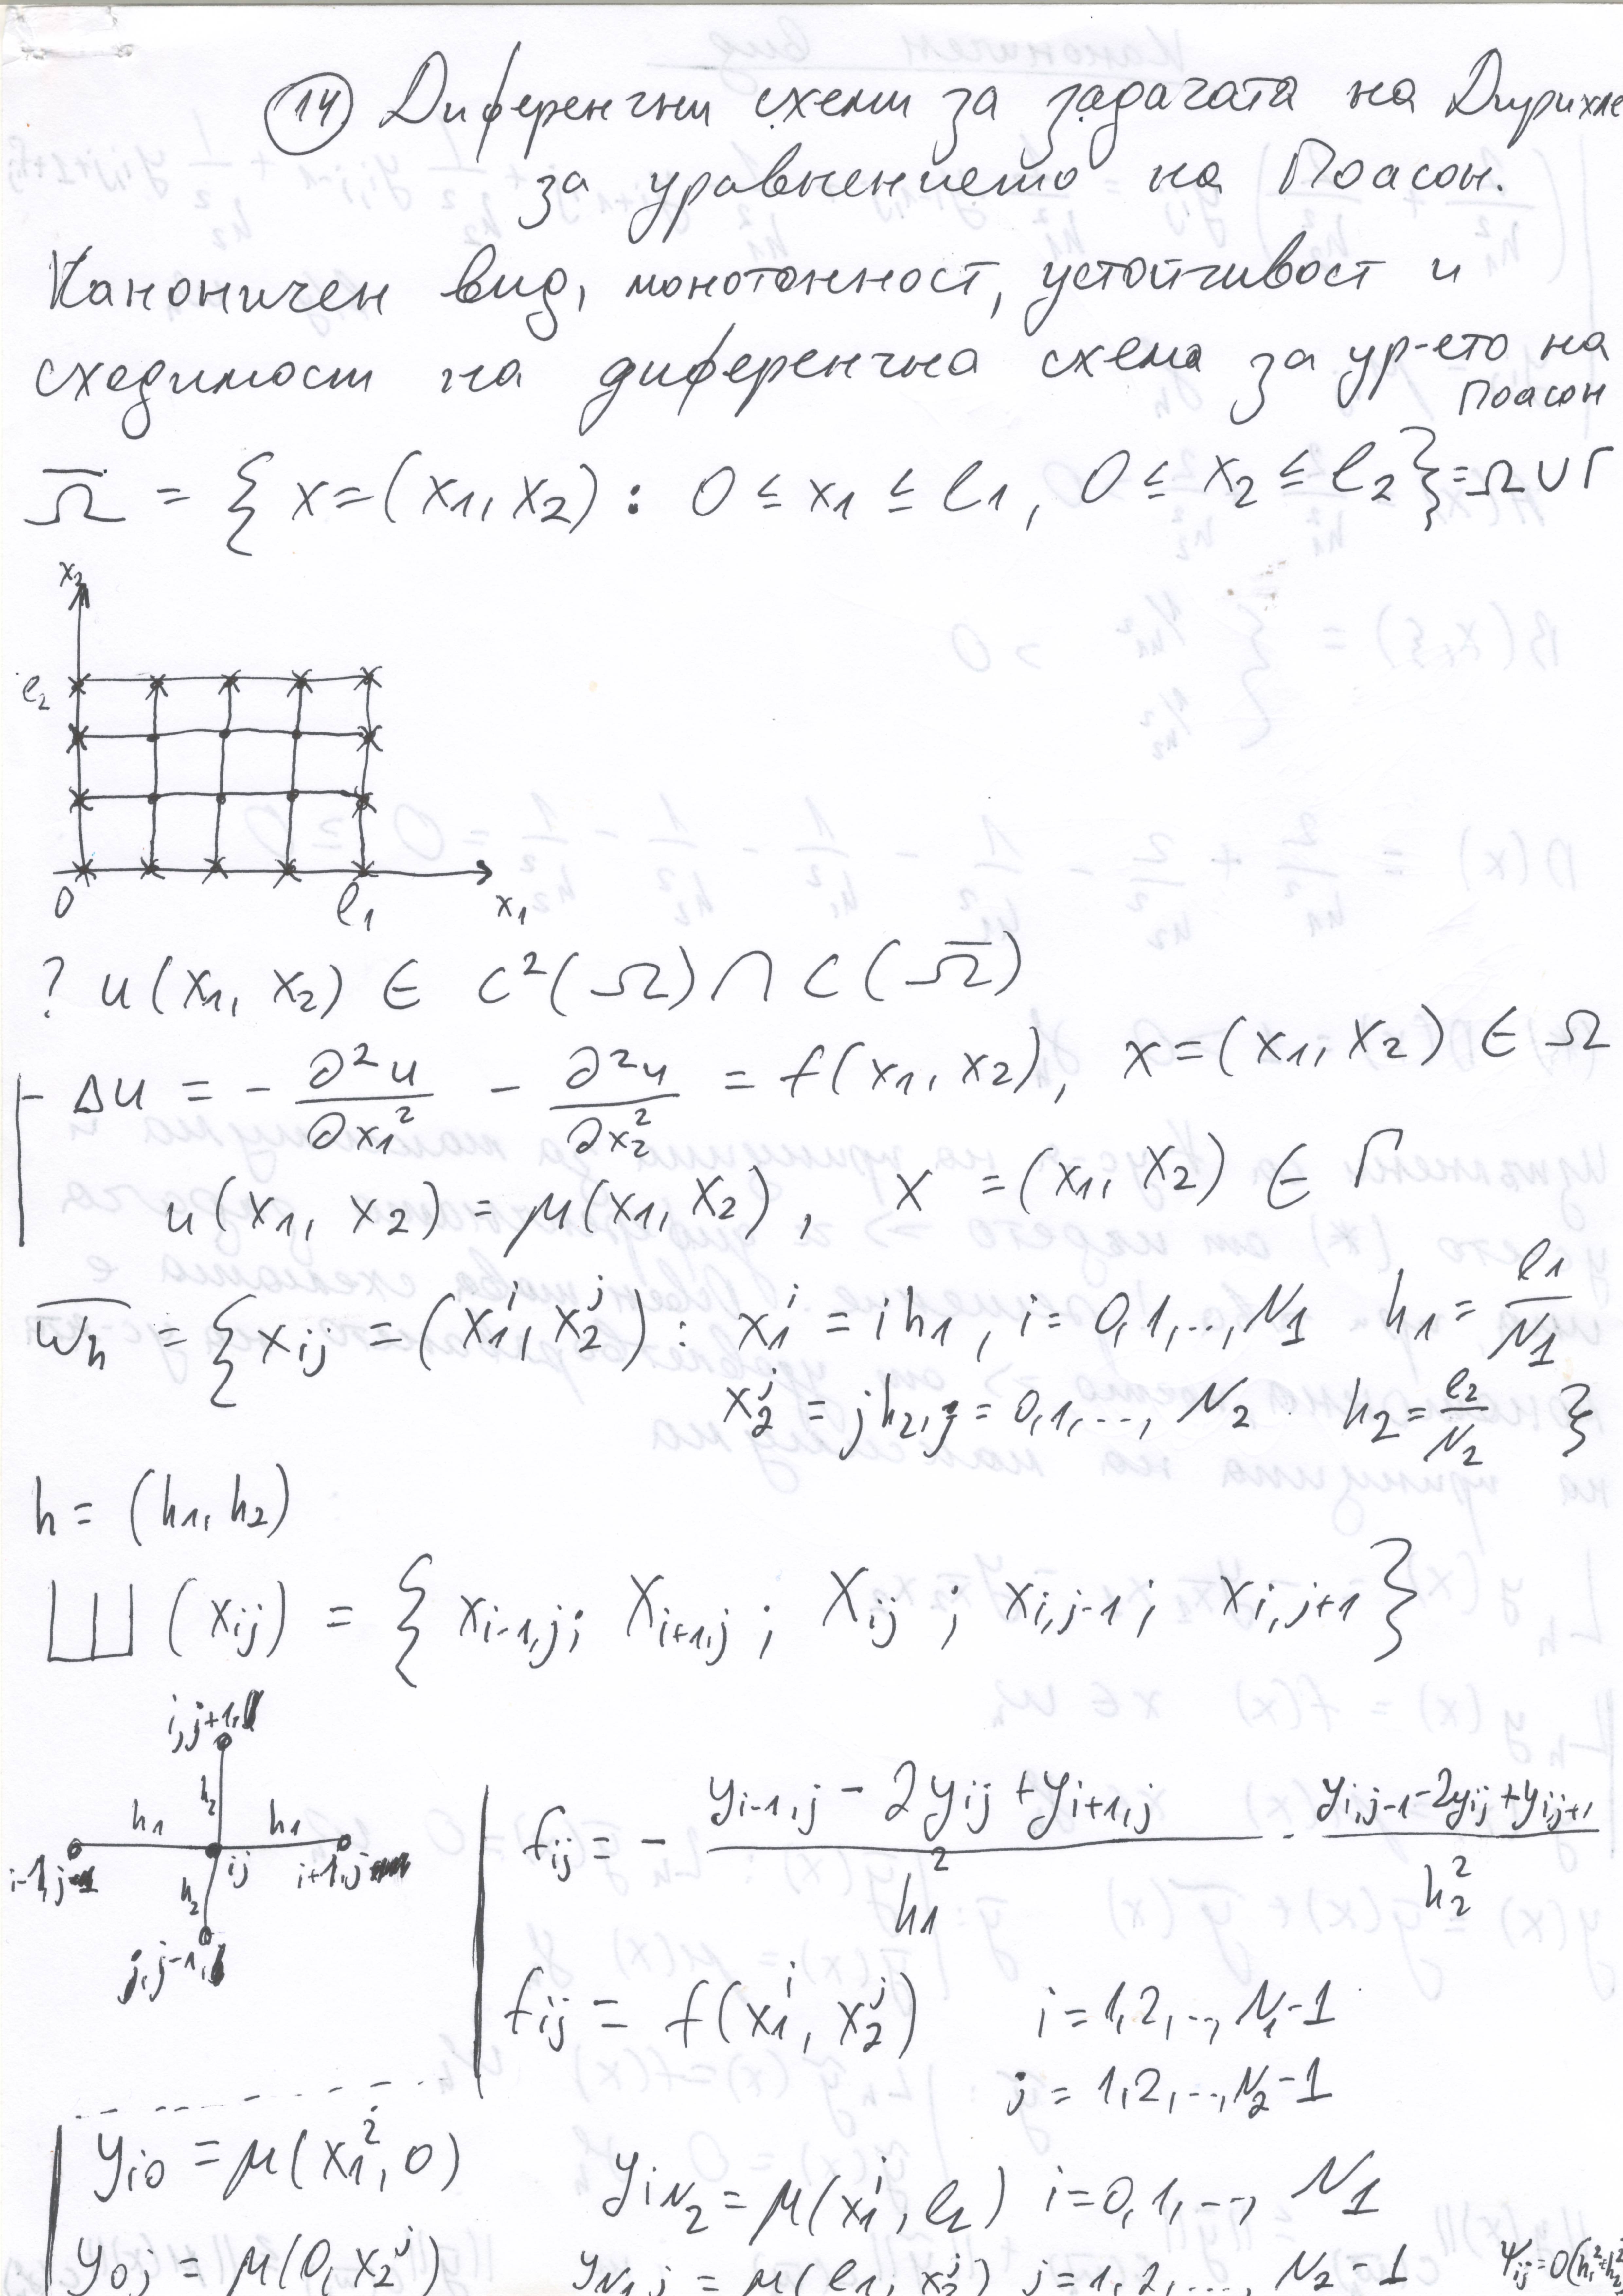 14 Диференчни схеми за задачата на Дирихле
за уравнението на Поасон.
Каноничен вид, монотонност, устойчивост и
сходимост на диференчна схема за ур-ето на
Поасон
Ω̅ = { x=(x₁, x₂) : 0 ≤ x₁ ≤ l₁, 0 ≤ x₂ ≤ l₂ } = Ω ∪ Γ
x₂
l₂
0 l₁ x₁
? u(x₁, x₂) ∈ C²(Ω) ∩ C(Ω̅)
- Δu = - ∂²u/∂x₁² - ∂²u/∂x₂² = f(x₁, x₂), x=(x₁, x₂) ∈ Ω
u(x₁, x₂) = μ(x₁, x₂), x = (x₁, x₂) ∈ Γ
ω̅_h = { x_ij = (x₁^i, x₂^j) : x₁^i = ih₁, i = 0,1,..,N₁ h₁ = l₁/N₁
x₂^j = jh₂, j = 0,1,..., N₂ h₂ = l₂/N₂ }
h = (h₁, h₂)
Ш (x_ij) = { x_i-1,j ; x_i+1,j ; x_ij ; x_i,j-1 ; x_i,j+1 }
i,j+1
h₂
h₁ h₁
i-1,j ij i+1,j
h₂
j,j-1
f_ij = - (y_i-1,j - 2y_ij + y_i+1,j)/h₁² - (y_i,j-1 - 2y_ij + y_ij+1)/h₂²
f_ij = f(x₁^i, x₂^j) i = 1,2,..,N₁-1
j = 1,2,..,N₂-1
y_i0 = μ(x₁^i, 0) y_iN₂ = μ(x₁^i, l₂) i=0,1,.., N₁
y_0j = μ(0, x₂^j) y_N₁j = μ(l₁, x₂^j) j = 1,2,..., N₂-1 Ψ_ij = O(h₁²+h₂²